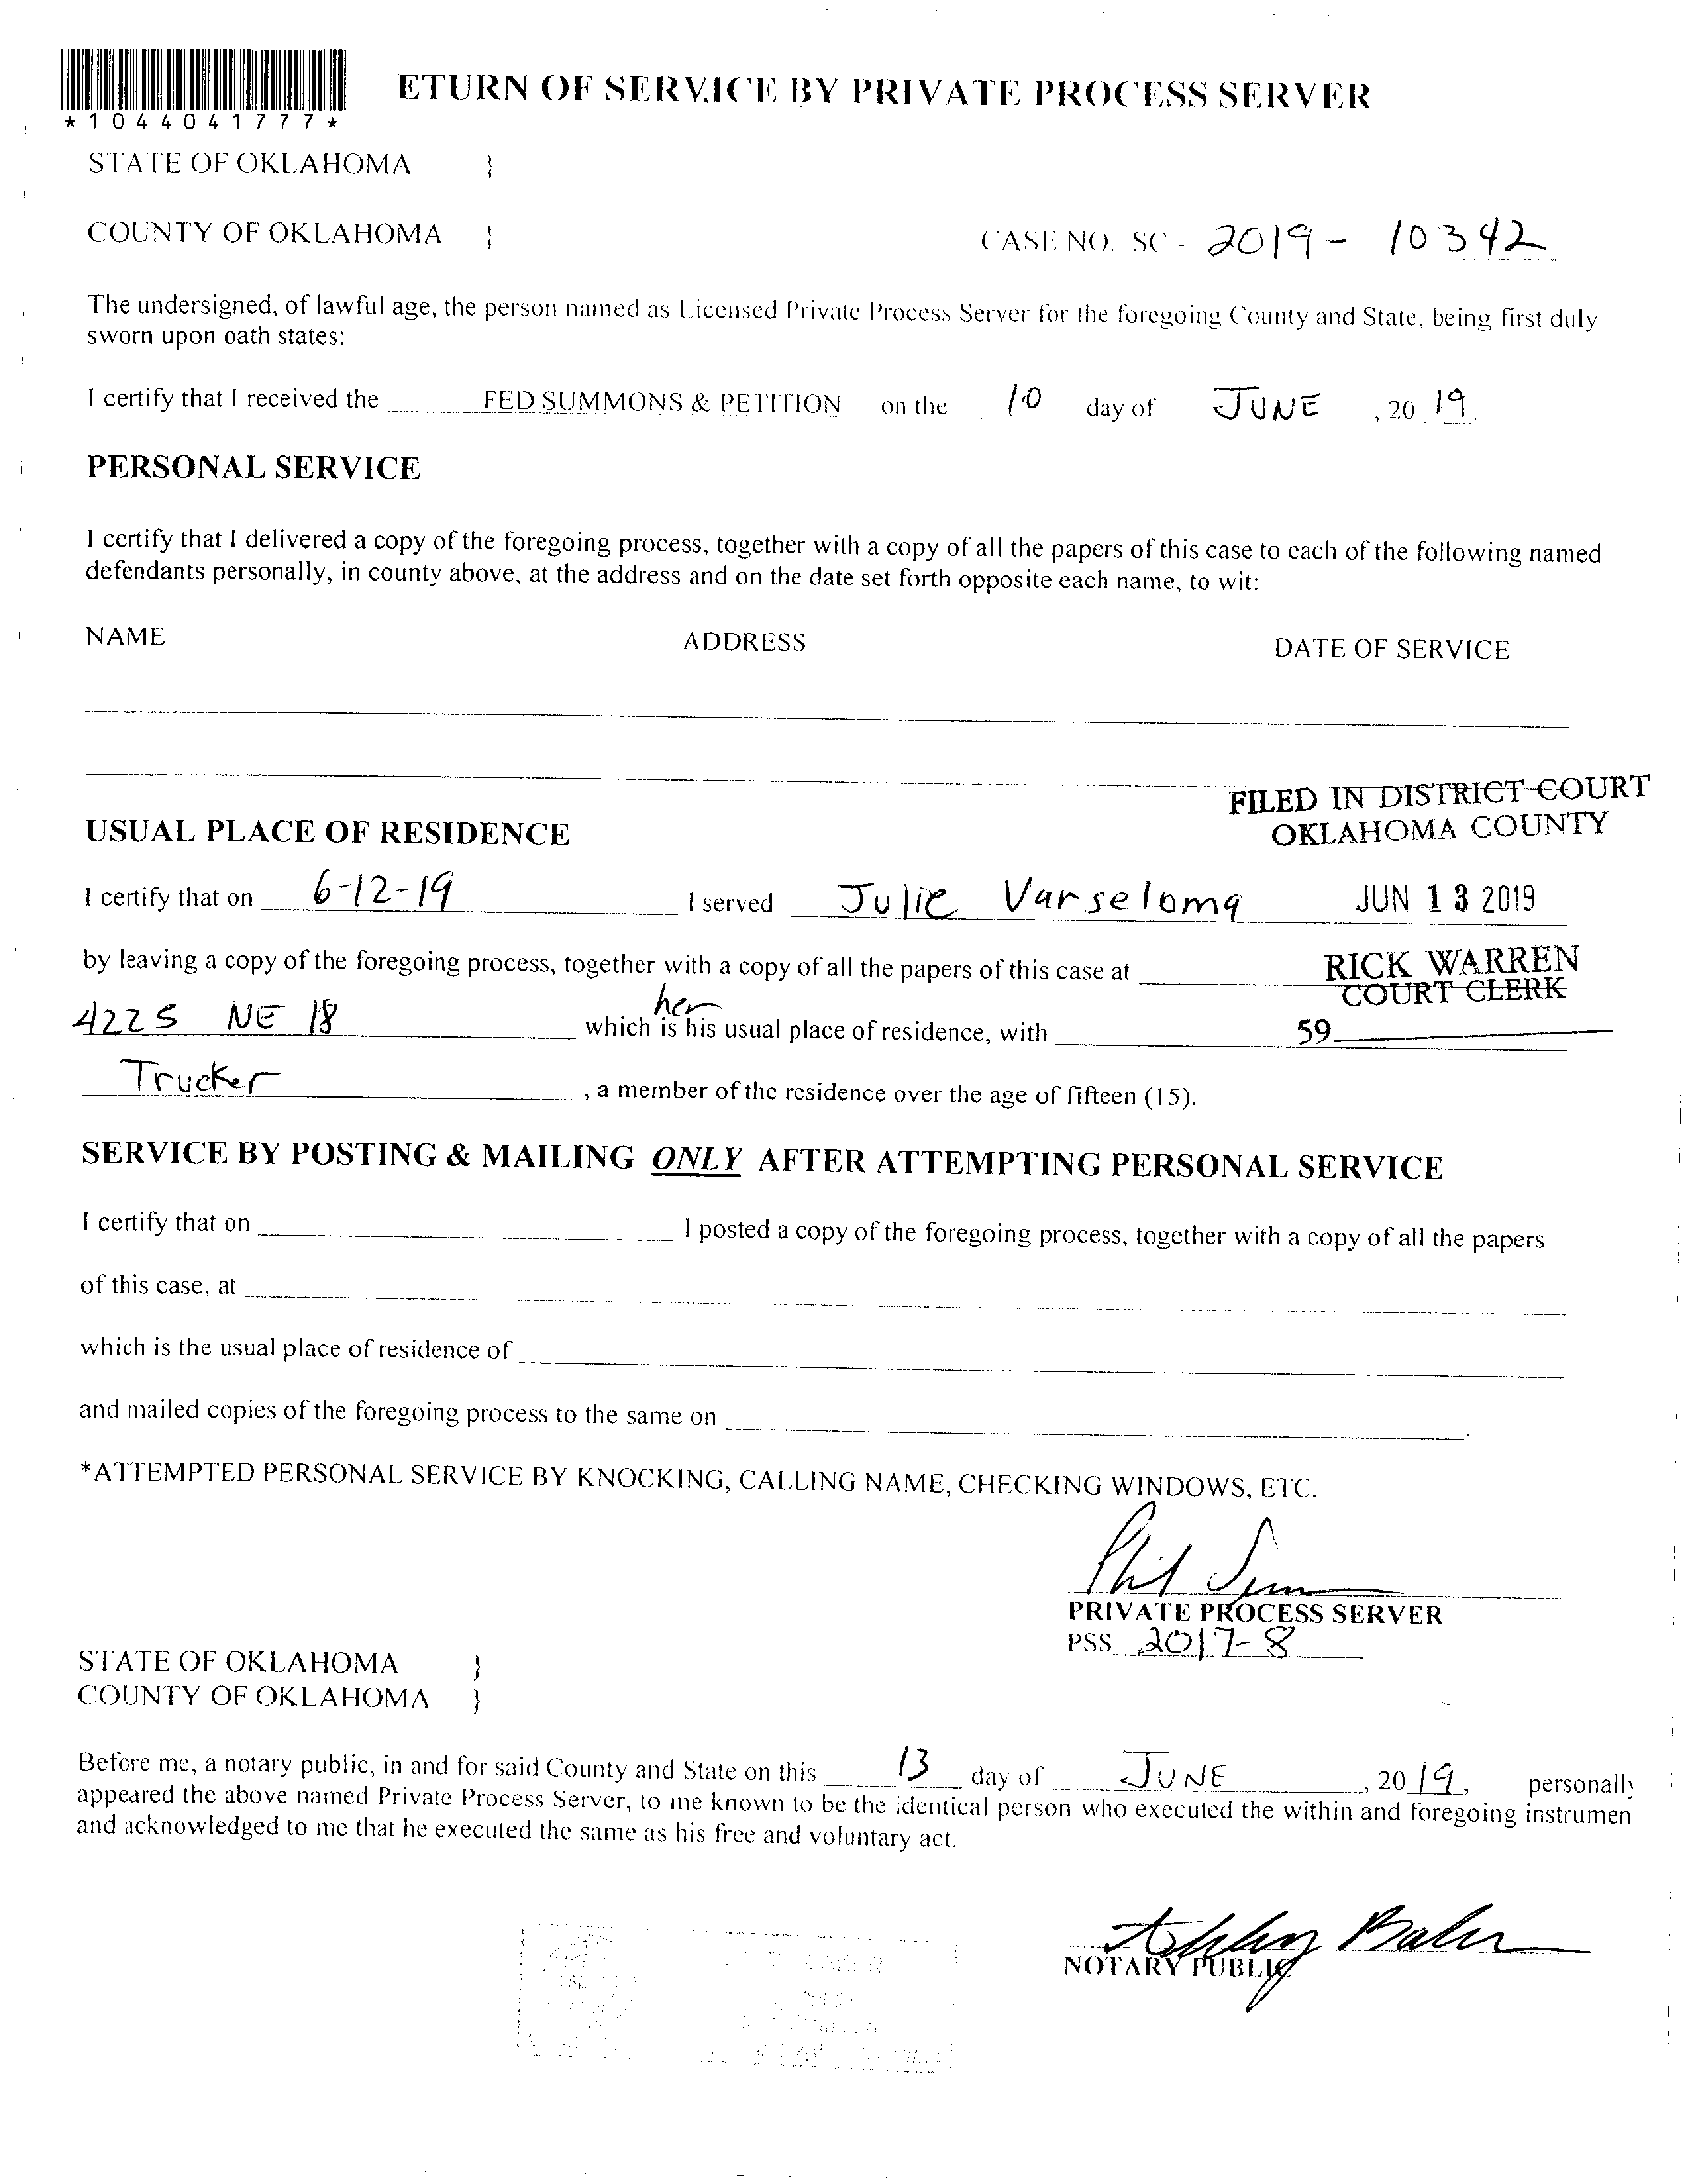 ETURN OF SERVICE BY PRIVATE PROCESS SERVER
*1044041777*
STATE OF OKLAHOMA }
COUNTY OF OKLAHOMA } CASE NO. SC - 2019 - 10342
The undersigned, of lawful age, the person named as Licensed Private Process Server for the foregoing County and State, being first duly
sworn upon oath states:
I certify that I received the FED SUMMONS & PETITION on the 10 day of JUNE , 20 19.
PERSONAL SERVICE
I certify that I delivered a copy of the foregoing process, together with a copy of all the papers of this case to each of the following named
defendants personally, in county above, at the address and on the date set forth opposite each name, to wit:
NAME ADDRESS DATE OF SERVICE
FILED IN DISTRICT COURT
OKLAHOMA COUNTY
USUAL PLACE OF RESIDENCE
I certify that on 6-12-19 I served Julie Varseloma JUN 13 2019
by leaving a copy of the foregoing process, together with a copy of all the papers of this case at RICK WARREN
COURT CLERK
her
4225 NE 18 which is his usual place of residence, with 59
Trucker , a member of the residence over the age of fifteen (15).
SERVICE BY POSTING & MAILING ONLY AFTER ATTEMPTING PERSONAL SERVICE
I certify that on I posted a copy of the foregoing process, together with a copy of all the papers
of this case, at
which is the usual place of residence of
and mailed copies of the foregoing process to the same on .
*ATTEMPTED PERSONAL SERVICE BY KNOCKING, CALLING NAME, CHECKING WINDOWS, ETC.
PRIVATE PROCESS SERVER
PSS 2017-8
STATE OF OKLAHOMA }
COUNTY OF OKLAHOMA }
Before me, a notary public, in and for said County and State on this 13 day of JUNE , 20 19, personally
appeared the above named Private Process Server, to me known to be the identical person who executed the within and foregoing instrumen
and acknowledged to me that he executed the same as his free and voluntary act.
NOTARY PUBLIC